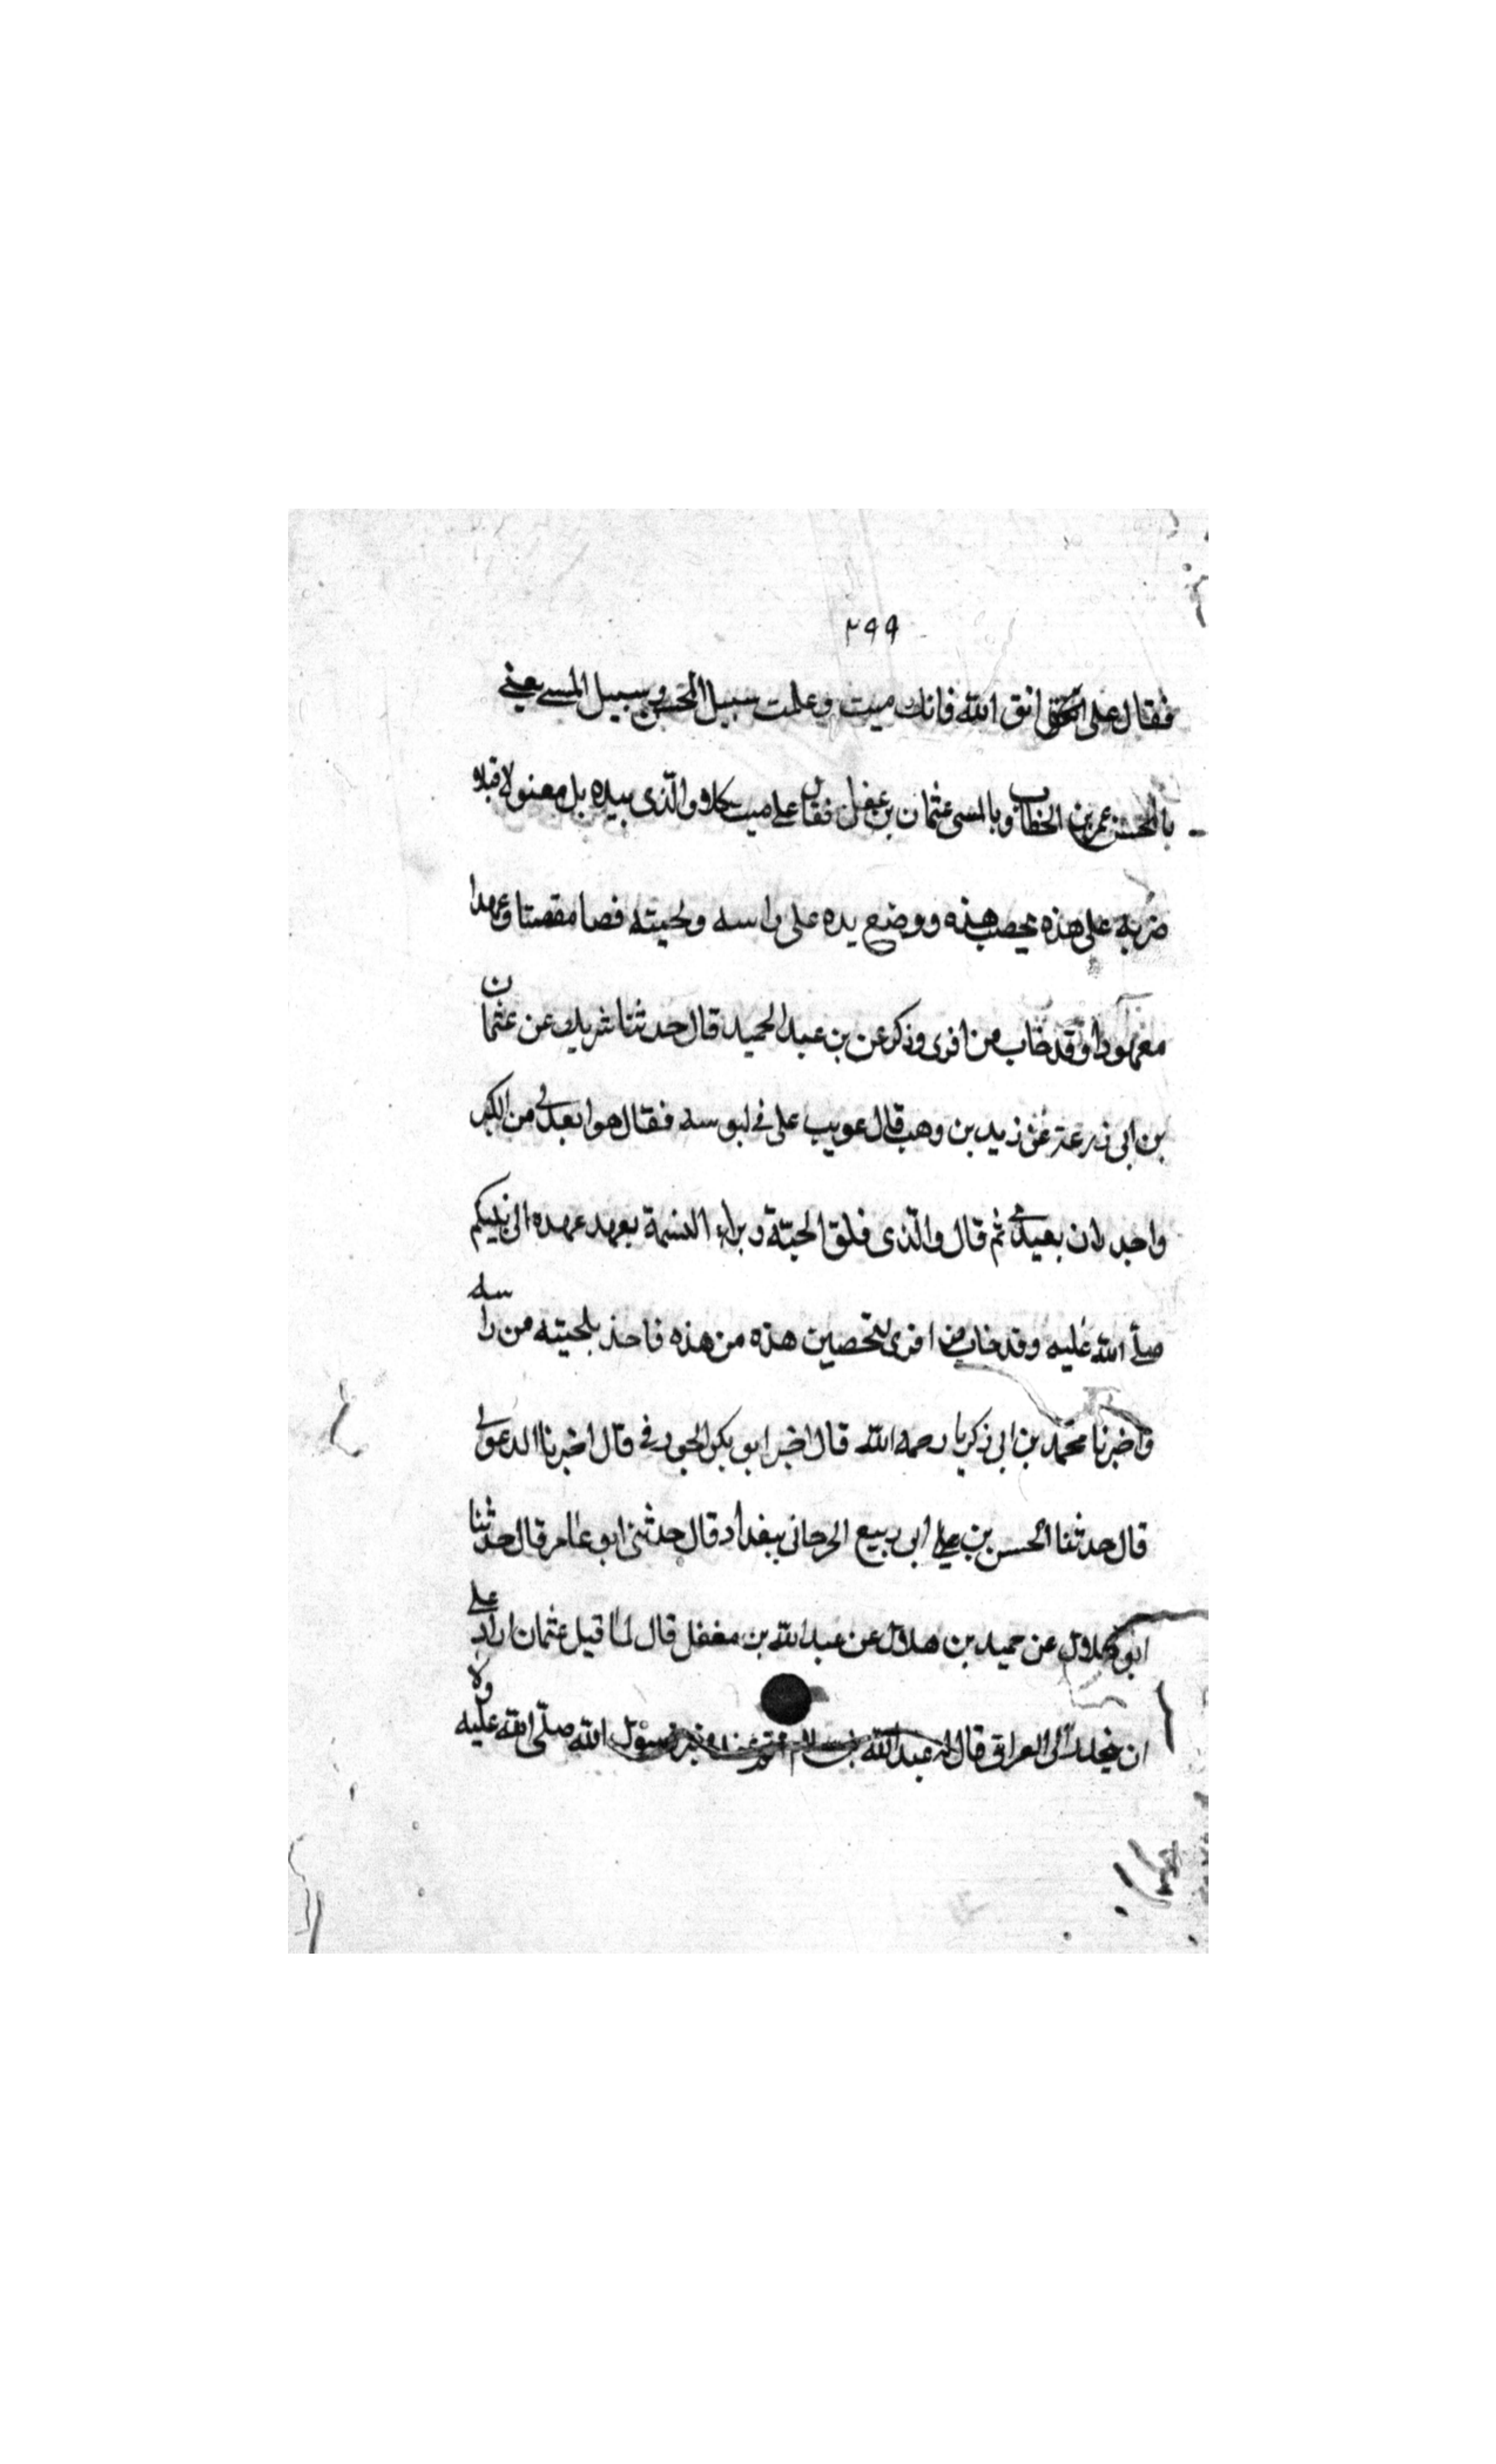 ٢٩٩
فقال على اتق الله فانك ميت وعلمت سبيل المحسن وسبيل المسى يعنى
بالمحسن عمر بن الخطاب وبالمسى عثمان بن عفل فقال على ميت كلا والذى بيده بل مقتولا قبلا
ضربة على هذه يخصب هذه ووضع يده على راسه ولحيته قصا مقصتا وعهدا
معهودا وقد خاب من افترى وذكر عن بن عبد الحميد قال حدثنا شريك عن عثمان
بن ابى زرعة عن زيد بن وهب قال عويب على فى لبوسه فقال هو ابعد لى من الكبر
واجد ان ثم قال والذى فلق الحبة وبراء النسمة بعهد عهده الى نبيكم
صلى الله عليه وقد خاب من افترى لتخصين هذه من هذه فاخذ بلحيته من راسه
واخبرنا محمد بن ابى زكريا رحمه الله قال اخبر ابو بكر الجورفى قال اخبرنا الدعولى
قال حدثنا الحسن بن على ابى ربيع الجرجانى ببغداد قال حدثنى ابو عامر قال حدثنا
ابو هلال عن حميد بن هلال عن عبد الله بن مغفل قال لما قيل عثمان اراد على
ان الى العراق قال له عبد الله بن سلام رسول الله صلى الله عليه